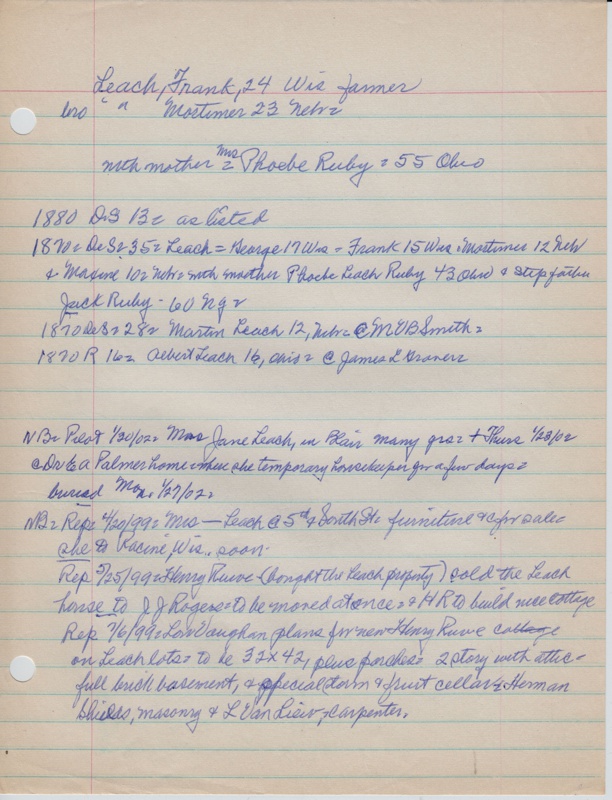 Leach, Frank, 24 Wis farmer
bro " Mortimer 23 Nebr=
with mother = Mrs Phoebe Ruby = 55 Ohio
1880 DeS B= as listed
1870= DeS= 35= Leach= George 17 Wis - Frank 15 Wis. Mortimer 12 Nebr
& 10= Nebr= with mother Phoebe Leach Ruby 43 Ohio & stepfather
Jack Ruby - 60
1870 DeS= 28= Martin Leach 12, Nebr= @ M V B Smith=
1870 R 16= Albert Leach 16, Ohio= @ James L
NB= Pilot 1/30/02= Mrs Jane Leach, in Blair many yrs= + Thurs 1/23/02
@ Dr E A Palmer home where she temporary housekeeper for a few days=
buried Mon. 1/27/02=
NB= Rep= 4/20/99= Mrs — Leach @ 5th & South Sts furniture for sale=
she to Racine, Wis., soon.
Rep 5/25/99= Henry Ruwe (bought the Leach property) sold the Leach
house to J J Rogers= to be moved at once= & H R to build nice cottage
Rep 7/6/99= Lou Vaughan plans for new Henry Ruwe cottage
on Leach lots= to be 32 x 42, plus porches= 2 story with attic=
full brick basement, & special storm & fruit cellar= Herman
Shields, masonry & L Van Liew, carpenter.